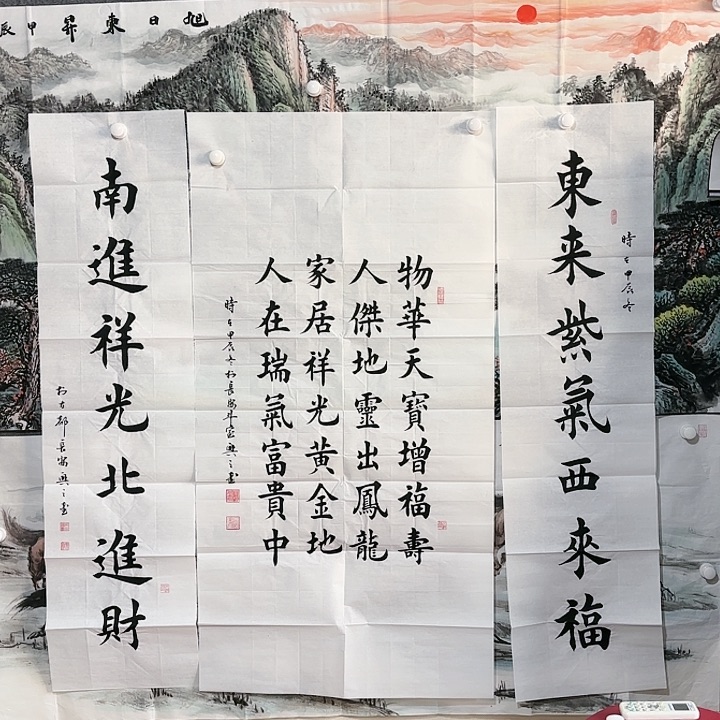 旭日東昇 甲辰
東来紫氣西來福
時在甲辰冬
物華天寶增福壽
人傑地靈出鳳龍
家居祥光黄金地
人在瑞氣富貴中
時在甲辰冬於長安斗室興之書
南進祥光北進財
於古都長安興之書